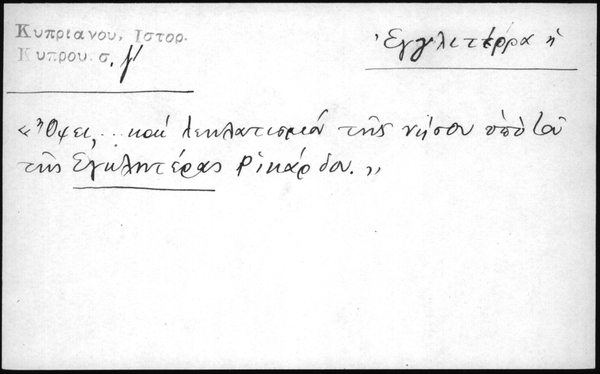 Κυπριανου, Ιστορ.
Κυπρου σ. γ'
Ἐγγλιτέρρα ἡ
«Ὄψει, ... καὶ λεηλατισμὸν τῆς νήσου ὑπὸ τοῦ
τῆς Ἐγκλητέρας Ρικάρδου.»